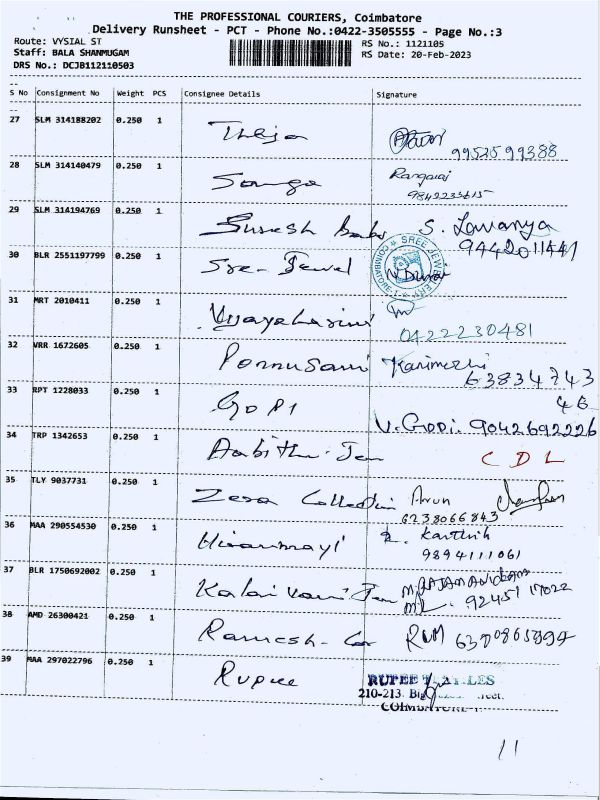 THE PROFESSIONAL COURIERS, Coimbatore
Delivery Runsheet - PCT - Phone No.:0422-3505555 - Page No.:3
Route: VYSIAL ST
RS No.: 1121105
Staff: BALA SHANMUGAM
RS Date: 20-Feb-2023
DRS No.: DCJB112110503
S No Consignment No Weight PCS Consignee Details Signature
27 SLM 314188202 0.250 1 Theja
9952599388
28 SLM 314140479 0.250 1 Rangaraj
9842235615
29 SLM 314194769 0.250 1 Suresh Babu S. Lavanya
9442011441
30 BLR 2551197799 0.250 1 Sree Jewel
SREE JEWELLERY COIMBATORE
31 MRT 2010411 0.250 1 Vijayaharini
0422230481
32 VRR 1672605 0.250 1 Ponnusami
63834743
46
33 RPT 1228033 0.250 1 GOPI
V. Gopi. 9042692226
34 TRP 1342653 0.250 1 CDL
35 TLY 9037731 0.250 1 Zera Collection Arun
6238066843
36 MAA 290554530 0.250 1 Hiranmayi R. Karthik
9894111061
37 BLR 1750692002 0.250 1 Kalaivani
92451 17022
38 AMD 26300421 0.250 1 Ramesh
39 MAA 297022796 0.250 1 Rupee RUPEE
210-213.
COIMBATORE
11